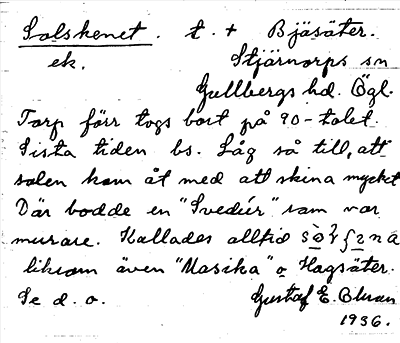 Solskenet. t. + Bjäsäter.
ek. Stjärnorps sn
Gullbergs hd. Ögl.
Torp förr togs bort på 90-talet.
Sista tiden bs. Låg så till, att
solen kom åt med att skina mycket
Där bodde en "Svedér" som var
murare. Kallades alltid
liksom även "Masika" o Hagsäter.
Se d. o. Gustaf E. Blman
1936.